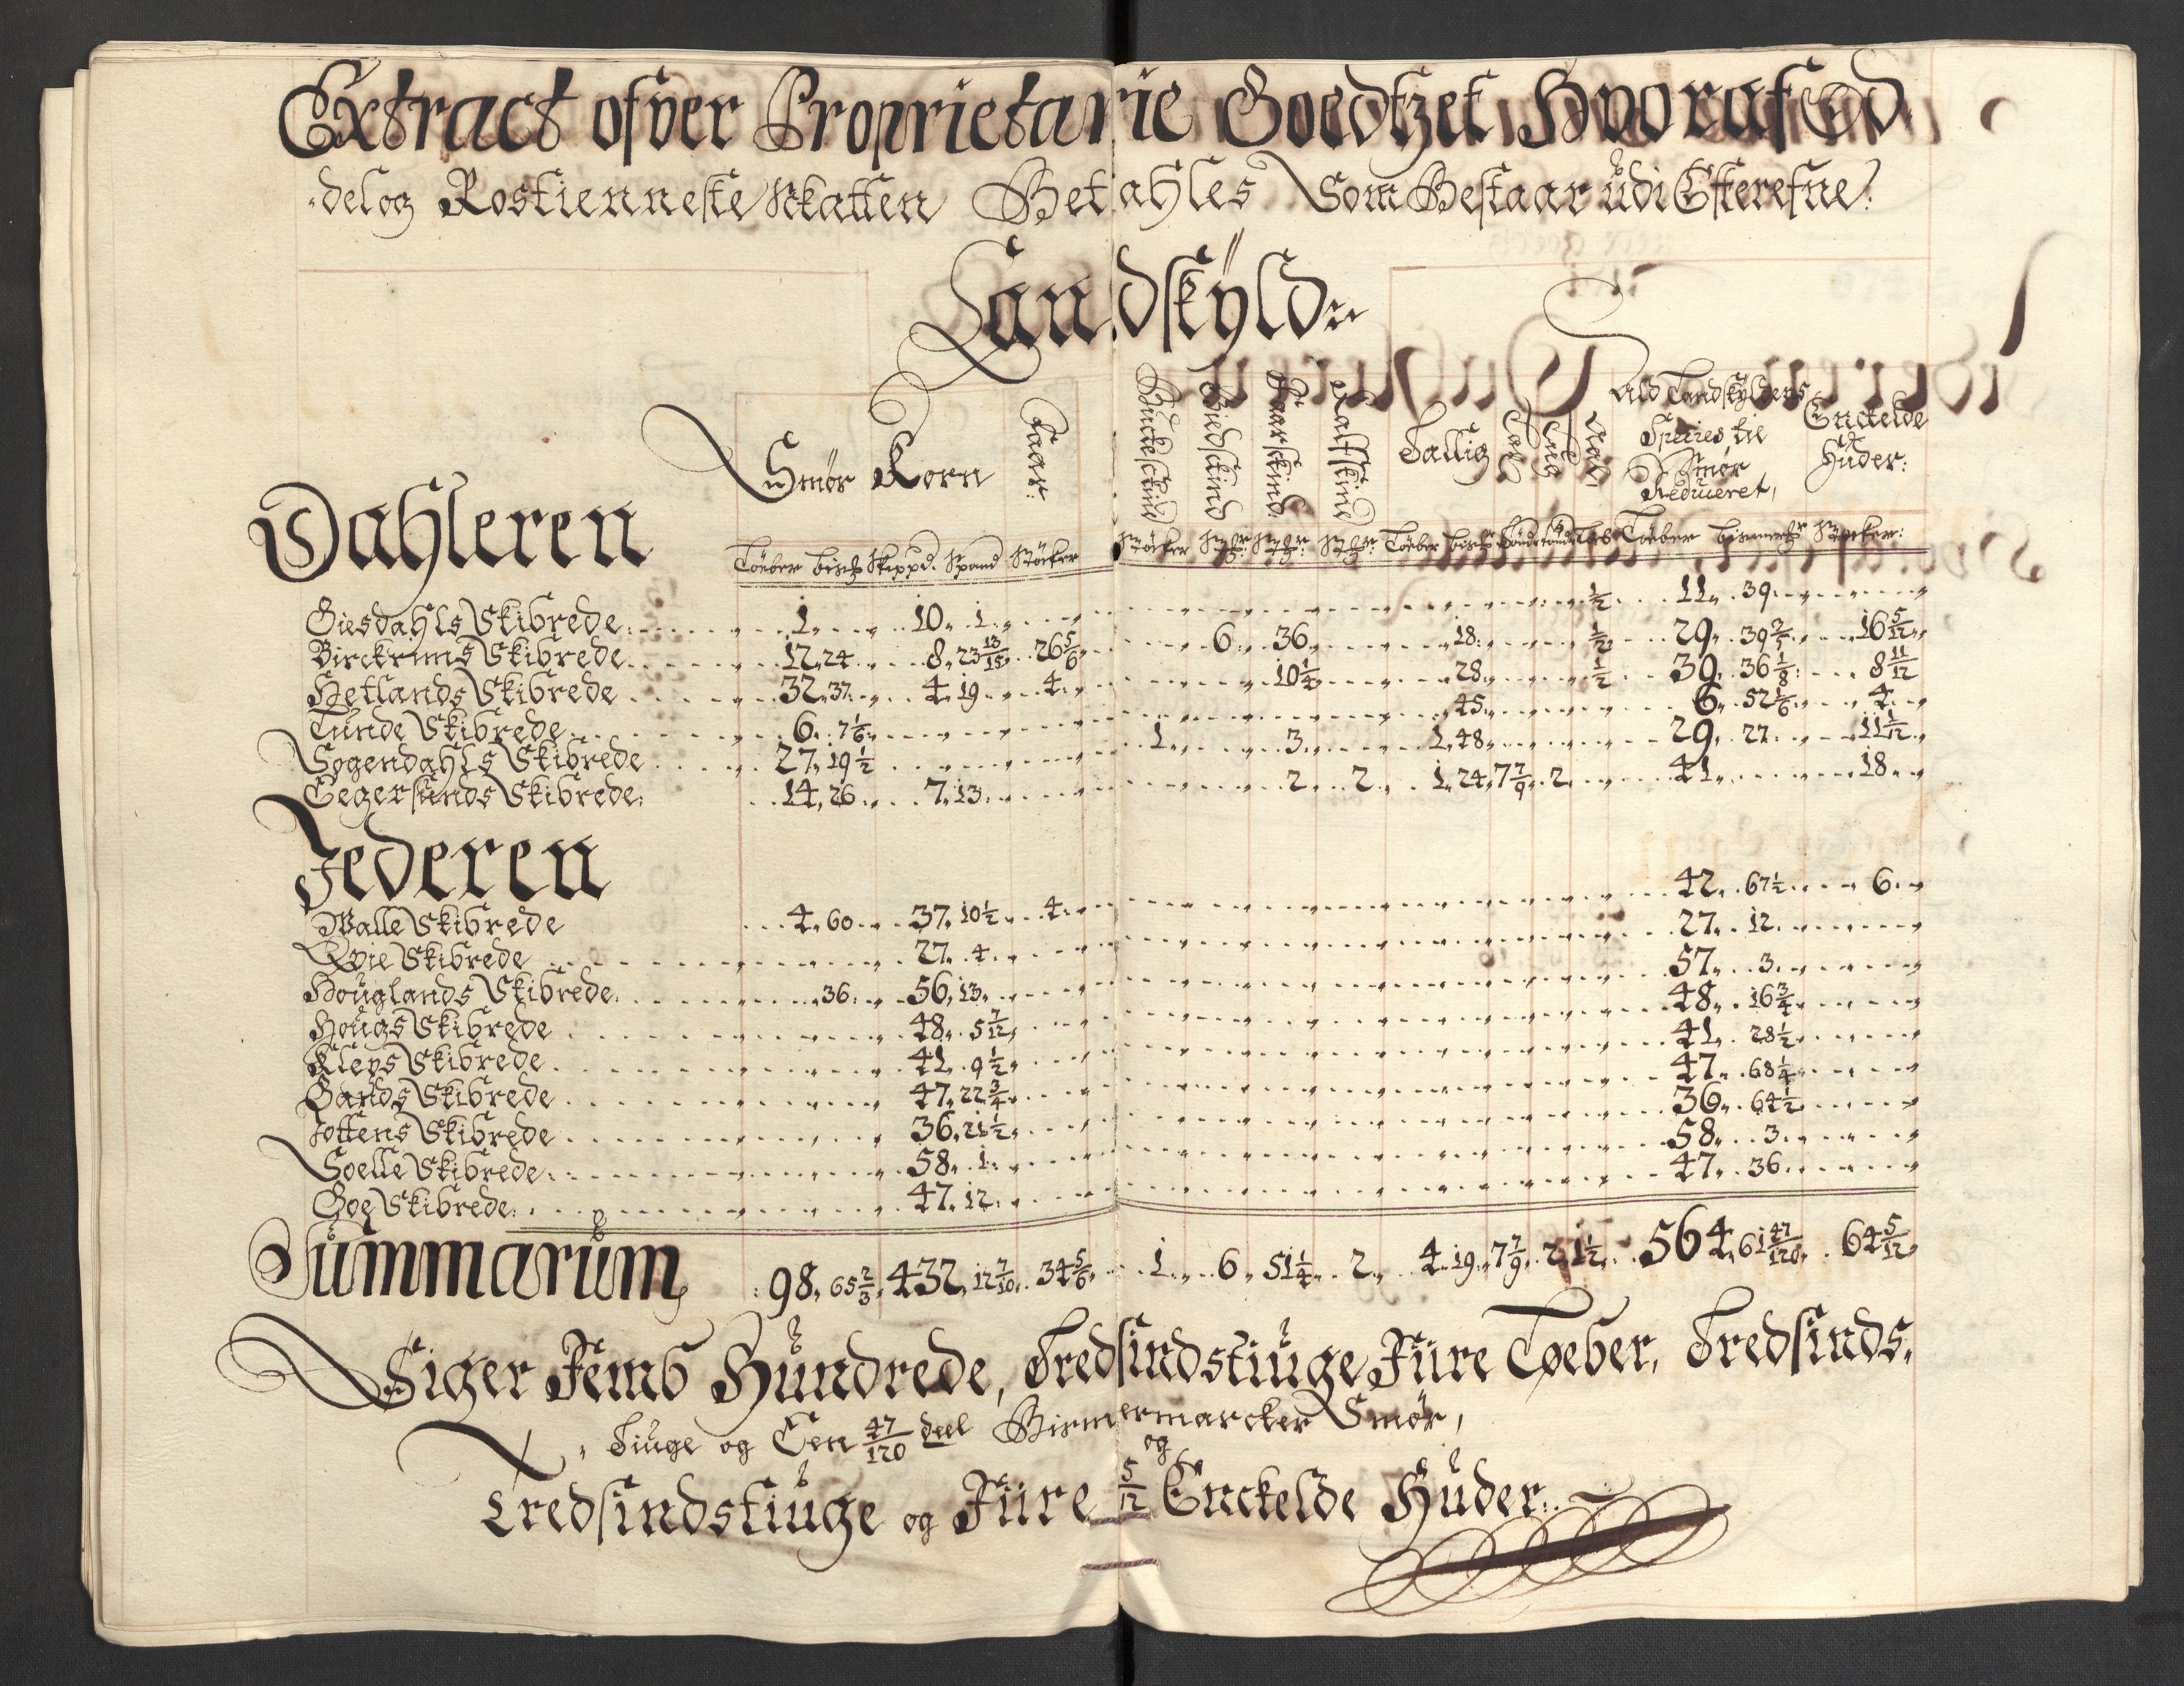 Extract ofver Proprietarie Goedtzet Hvoraf Od
delog Rostienneste Skatten Betahles Som Bestaar udi Efterefne:
Landskyld
Smør Korn Faar: Buckeskind Giedskind Faarskind Kalfskind Tallig Ald Landskyldens Species til Smør Reduceret, Enckelde Huder:
Dahleren
Løeber bisch Skippd. Spand Støcker Støcker Løeber Løeber bismerch Støcker:
Giesdahls Skibrede: 1 10 1 ½ 11 39
Birckrims Skibrede 12 24 8 23 13/15 26 5/6 6 36 18 ½ 29 39 2/5 16 5/12
Hetlands Skibrede 32 37 4 19 4 10 ¼ 28 ½ 39 36 1/8 8 11/12
Lunde Skibrede 6 7 1/6 45 6 52 1/6 4
Sogendahls Skibrede 27 19 ½ 1 3 1 48 29 27 11 1/12
Eegersunds Skibrede: 14 26 7 13 2 2 1 24 7 7/9 2 41 18
Jederen
Walle Skibrede 4 60 37 10 ½ 4 42 67 ½ 6
Qvie Skibrede 27 4 27 12
Houglands Skibrede 36 56 13 57 3
Hougs Skibrede 48 5 7/12 48 16 ¾
Kleps Skibrede 41 9 ½ 41 28 ½
Gands Skibrede 47 22 ¾ 47 68 ¼
Jottens Skibrede 36 21 ½ 36 64 ½
Soelle Skibrede 58 1 58 3
Goe Skibrede 47 12 47 36
Summarum 98 65 2/3 432 12 7/10 34 5/6 1 6 51 ¼ 2 4 19 7 7/9 2 1 ½ 564 61 47/120 64 5/12
Siger Femb Hundrede, Tredsindstiuge Fiire Løeber, Tredsinds,
Tiuge og Een 47/120 deel Bismermarcker Smør,
og
Tredsindstiuge og Fiire 5/12 Enckelde Huder: